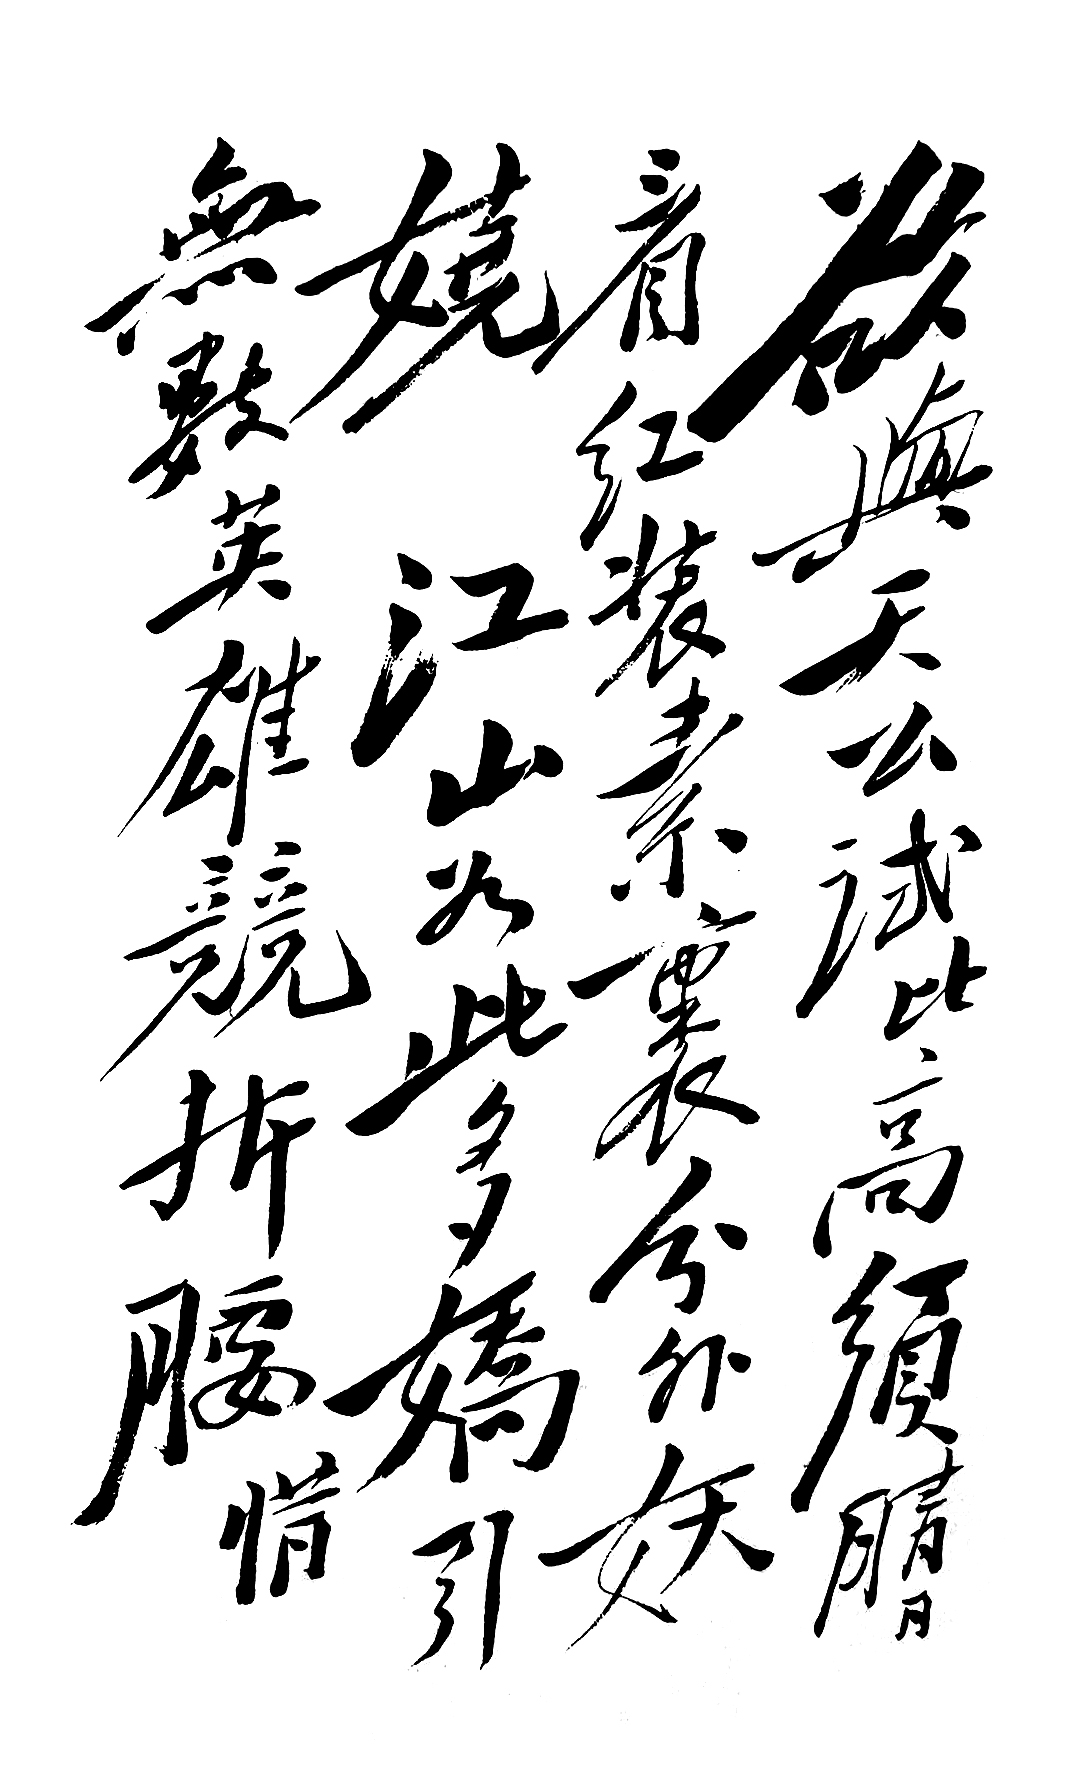 欲與天公試比高須晴日
看紅裝素裹分外妖
嬈 江山如此多嬌引
無數英雄競折腰惜